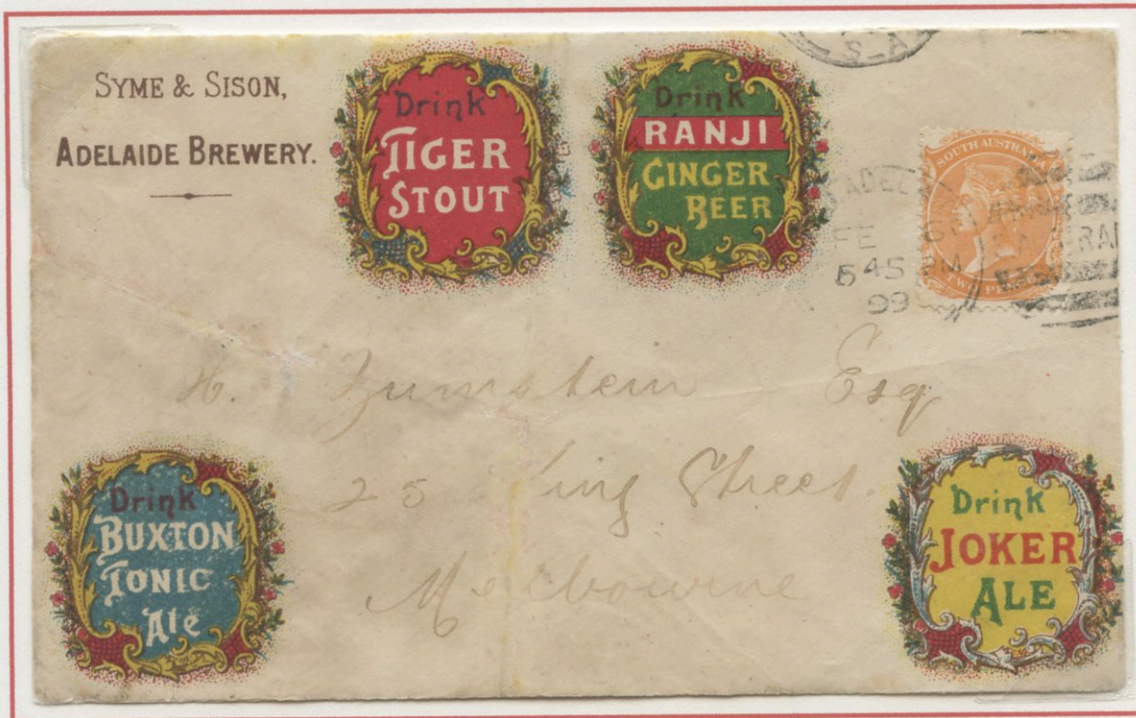 SYME & SISON,
ADELAIDE BREWERY.
Drink
TIGER
STOUT
Drink
RANJI
GINGER
BEER
S_A
SOUTH AUSTRALIA
ADEL
FE 6
5 45 PM
99
H. Zumstein Esq
25 King Street
Melbourne
Drink
BUXTON
TONIC
Ale
Drink
JOKER
ALE